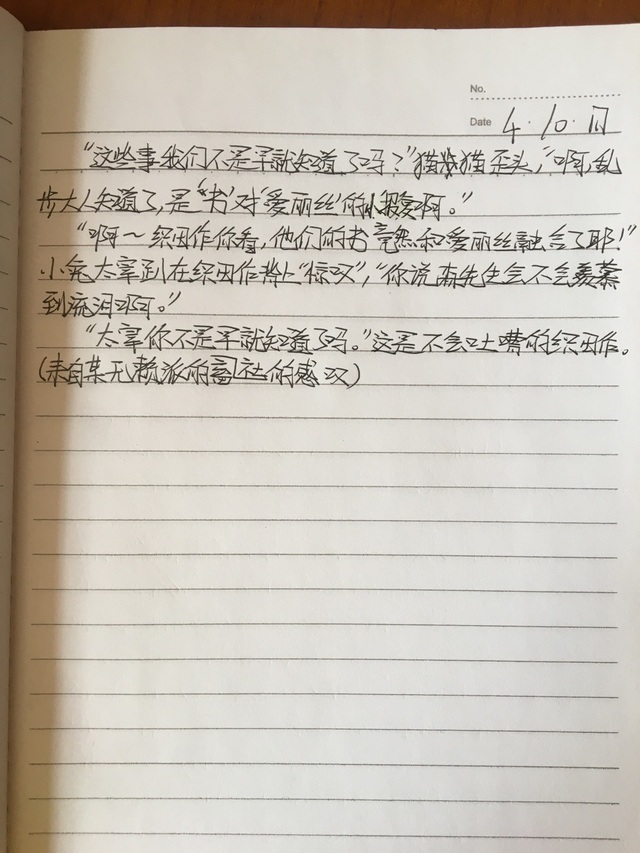 No.
Date 4. 10. 日
“这些事我们不是早就知道了吗？”猫猫歪头，“啊，乱
步大人知道了，是‘书’对‘爱丽丝’的小报复啊。”
“啊～织田作你看，他们的书竟然和爱丽丝融合了耶！”
小兔太宰趴在织田作背上“惊叹”，“你说森先生会不会羡慕
到流泪啊。”
“太宰你不是早就知道了吗。”这是不会吐嘈的织田作。
（来自某无赖派的 社的感叹）